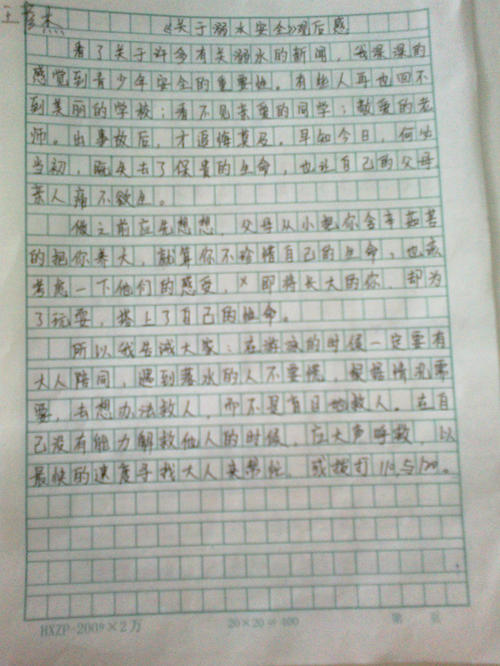 王彦杰
《关于溺水安全》观后感
看了关于许多有关溺水的新闻，我深深的
感觉到青少年安全的重要性。有些人再也回不
到美丽的学校；看不见亲爱的同学；敬爱的老
师。出事故后，才追悔莫及。早知今日，何必
当初，既失去了保贵的生命，也让自己的父母
亲人痛不欲生。
做之前应先想想，父母从小把你含辛茹苦
的把你养大，就算你不珍惜自己的生命，也该
考虑一下他们的感受，即将长大的你，却为
了玩耍，搭上了自己的性命。
所以我告诫大家：在游泳的时候一定要有
大人陪同，遇到落水的人不要慌，根据情况需
要，去想办法救人，而不是盲目地救人。在自
己没有能力解救他人的时候，应大声呼救，以
最快的速度寻找大人来帮忙，或拨打110与120。
HXZP-2009×2万
20×20=400
第 页